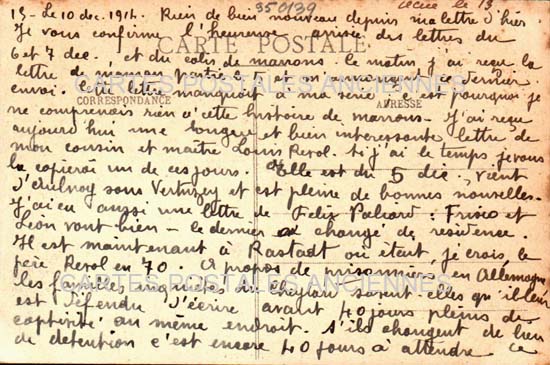 350139
reçue le 13
13 - Le 10 dec. 1914. Rien de bien nouveau depuis ma lettre d'hier.
Je vous confirme l'heureuse arrivée des lettres du
CARTE POSTALE
6 et 7 dec. et du colis de marrons. le matin j'ai reçu la
lettre de maman partie le 4 et en annonçant ce dernier
envoi. Cette lettre manquait à ma série. c'est pourquoi je
CARTES POSTALES ANCIENNES
CORRESPONDANCE
ADRESSE
ne comprenais rien à cette histoire de marrons. J'ai reçu
aujourd'hui une longue et bien intéressante lettre de
mon cousin et maître Louis Revol. Si j'ai le temps je vous
la copierai un de ces jours. Elle est du 5 déc. vient
d' sous et est pleine de bonnes nouvelles.
J'ai eu aussi une lettre de Felix Paliard : Frisco et
Léon vont bien - le dernier a changé de résidence.
Il est maintenant à Rastadt où était, je crois le
père Revol en 70. A propos de prisonniers en Allemagne
CARTES POSTALES ANCIENNES
les familles inquiètes du savent-elles qu'il leur
est défendu d'écrire avant 40 jours pleins de
captivité au même endroit. S'ils changent de lieu
de détention c'est encore 40 jours à attendre ce